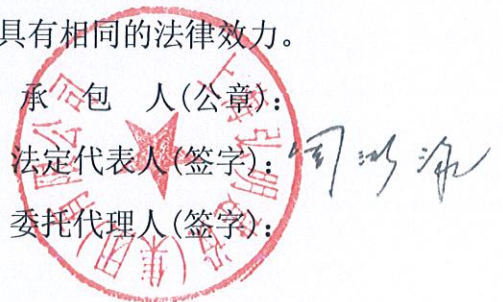 具有相同的法律效力。
承 包 人(公章):
法定代表人(签字):
委托代理人(签字):
(集团)有限公司